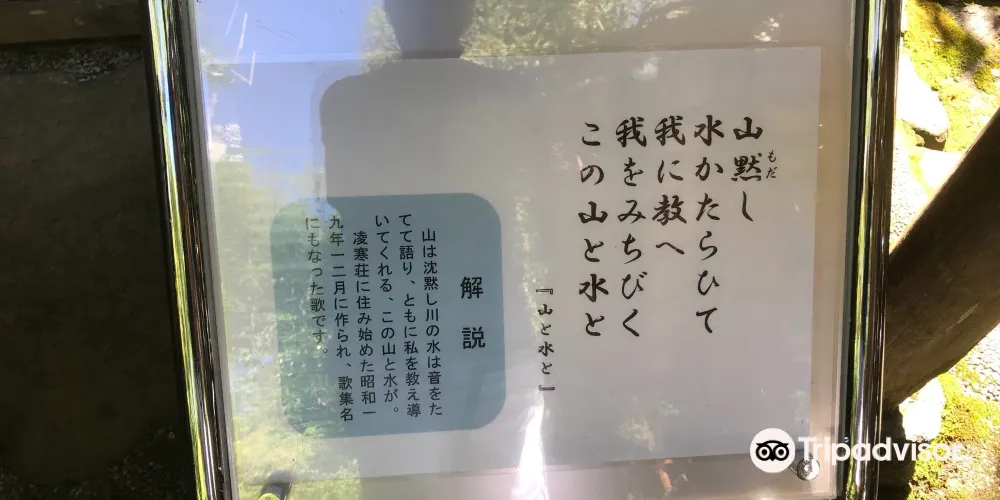 山黙し
もだ
水かたらひて
我に教へ
我をみちびく
この山と水と
『山と水と』
解説
山は沈黙し川の水は音をた
てて語り、ともに私を教え導
いてくれる、この山と水が。
凌寒荘に住み始めた昭和一
九年一二月に作られ、歌集名
にもなった歌です。
Tripadvisor